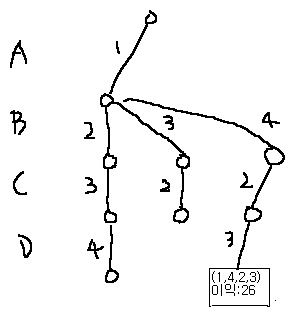 A 1
B 2 3 4
C 3 2 2
D 4 3
(1,4,2,3)
이익:26